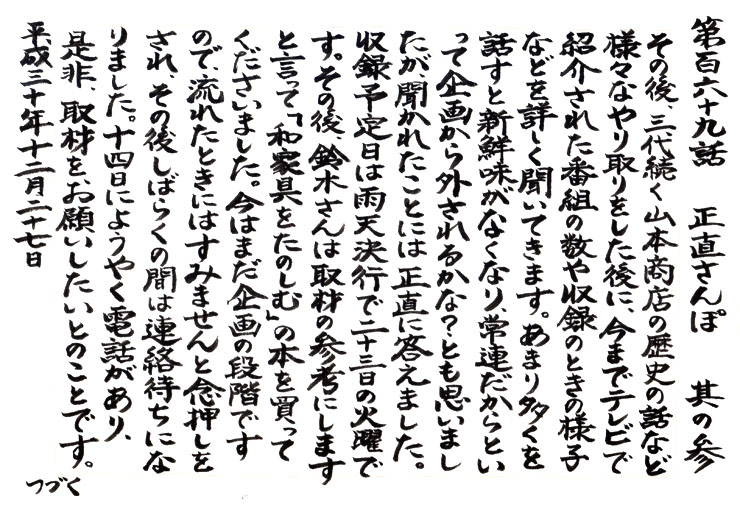 第百六十九話　正直さんぽ　其の参
その後、三代続く山本商店の歴史の話など
様々なやり取りをした後に、今までテレビで
紹介された番組の数や収録のときの様子
などを詳しく聞いてきます。あまり多くを
話すと新鮮味がなくなり、常連だからとい
って企画から外されるかな？とも思いまし
たが、聞かれたことには正直に答えました。
収録予定日は雨天決行で二十三日の火曜で
す。その後、鈴木さんは取材の参考にします
と言って「和家具をたのしむ」の本を買って
くださいました。今はまだ企画の段階です
ので、流れたときにはすみませんと念押しを
され、その後しばらくの間は連絡待ちにな
りました。十四日にようやく電話があり、
是非、取材を、お願いしたいとのことです。
平成三十年十二月二十七日
つづく